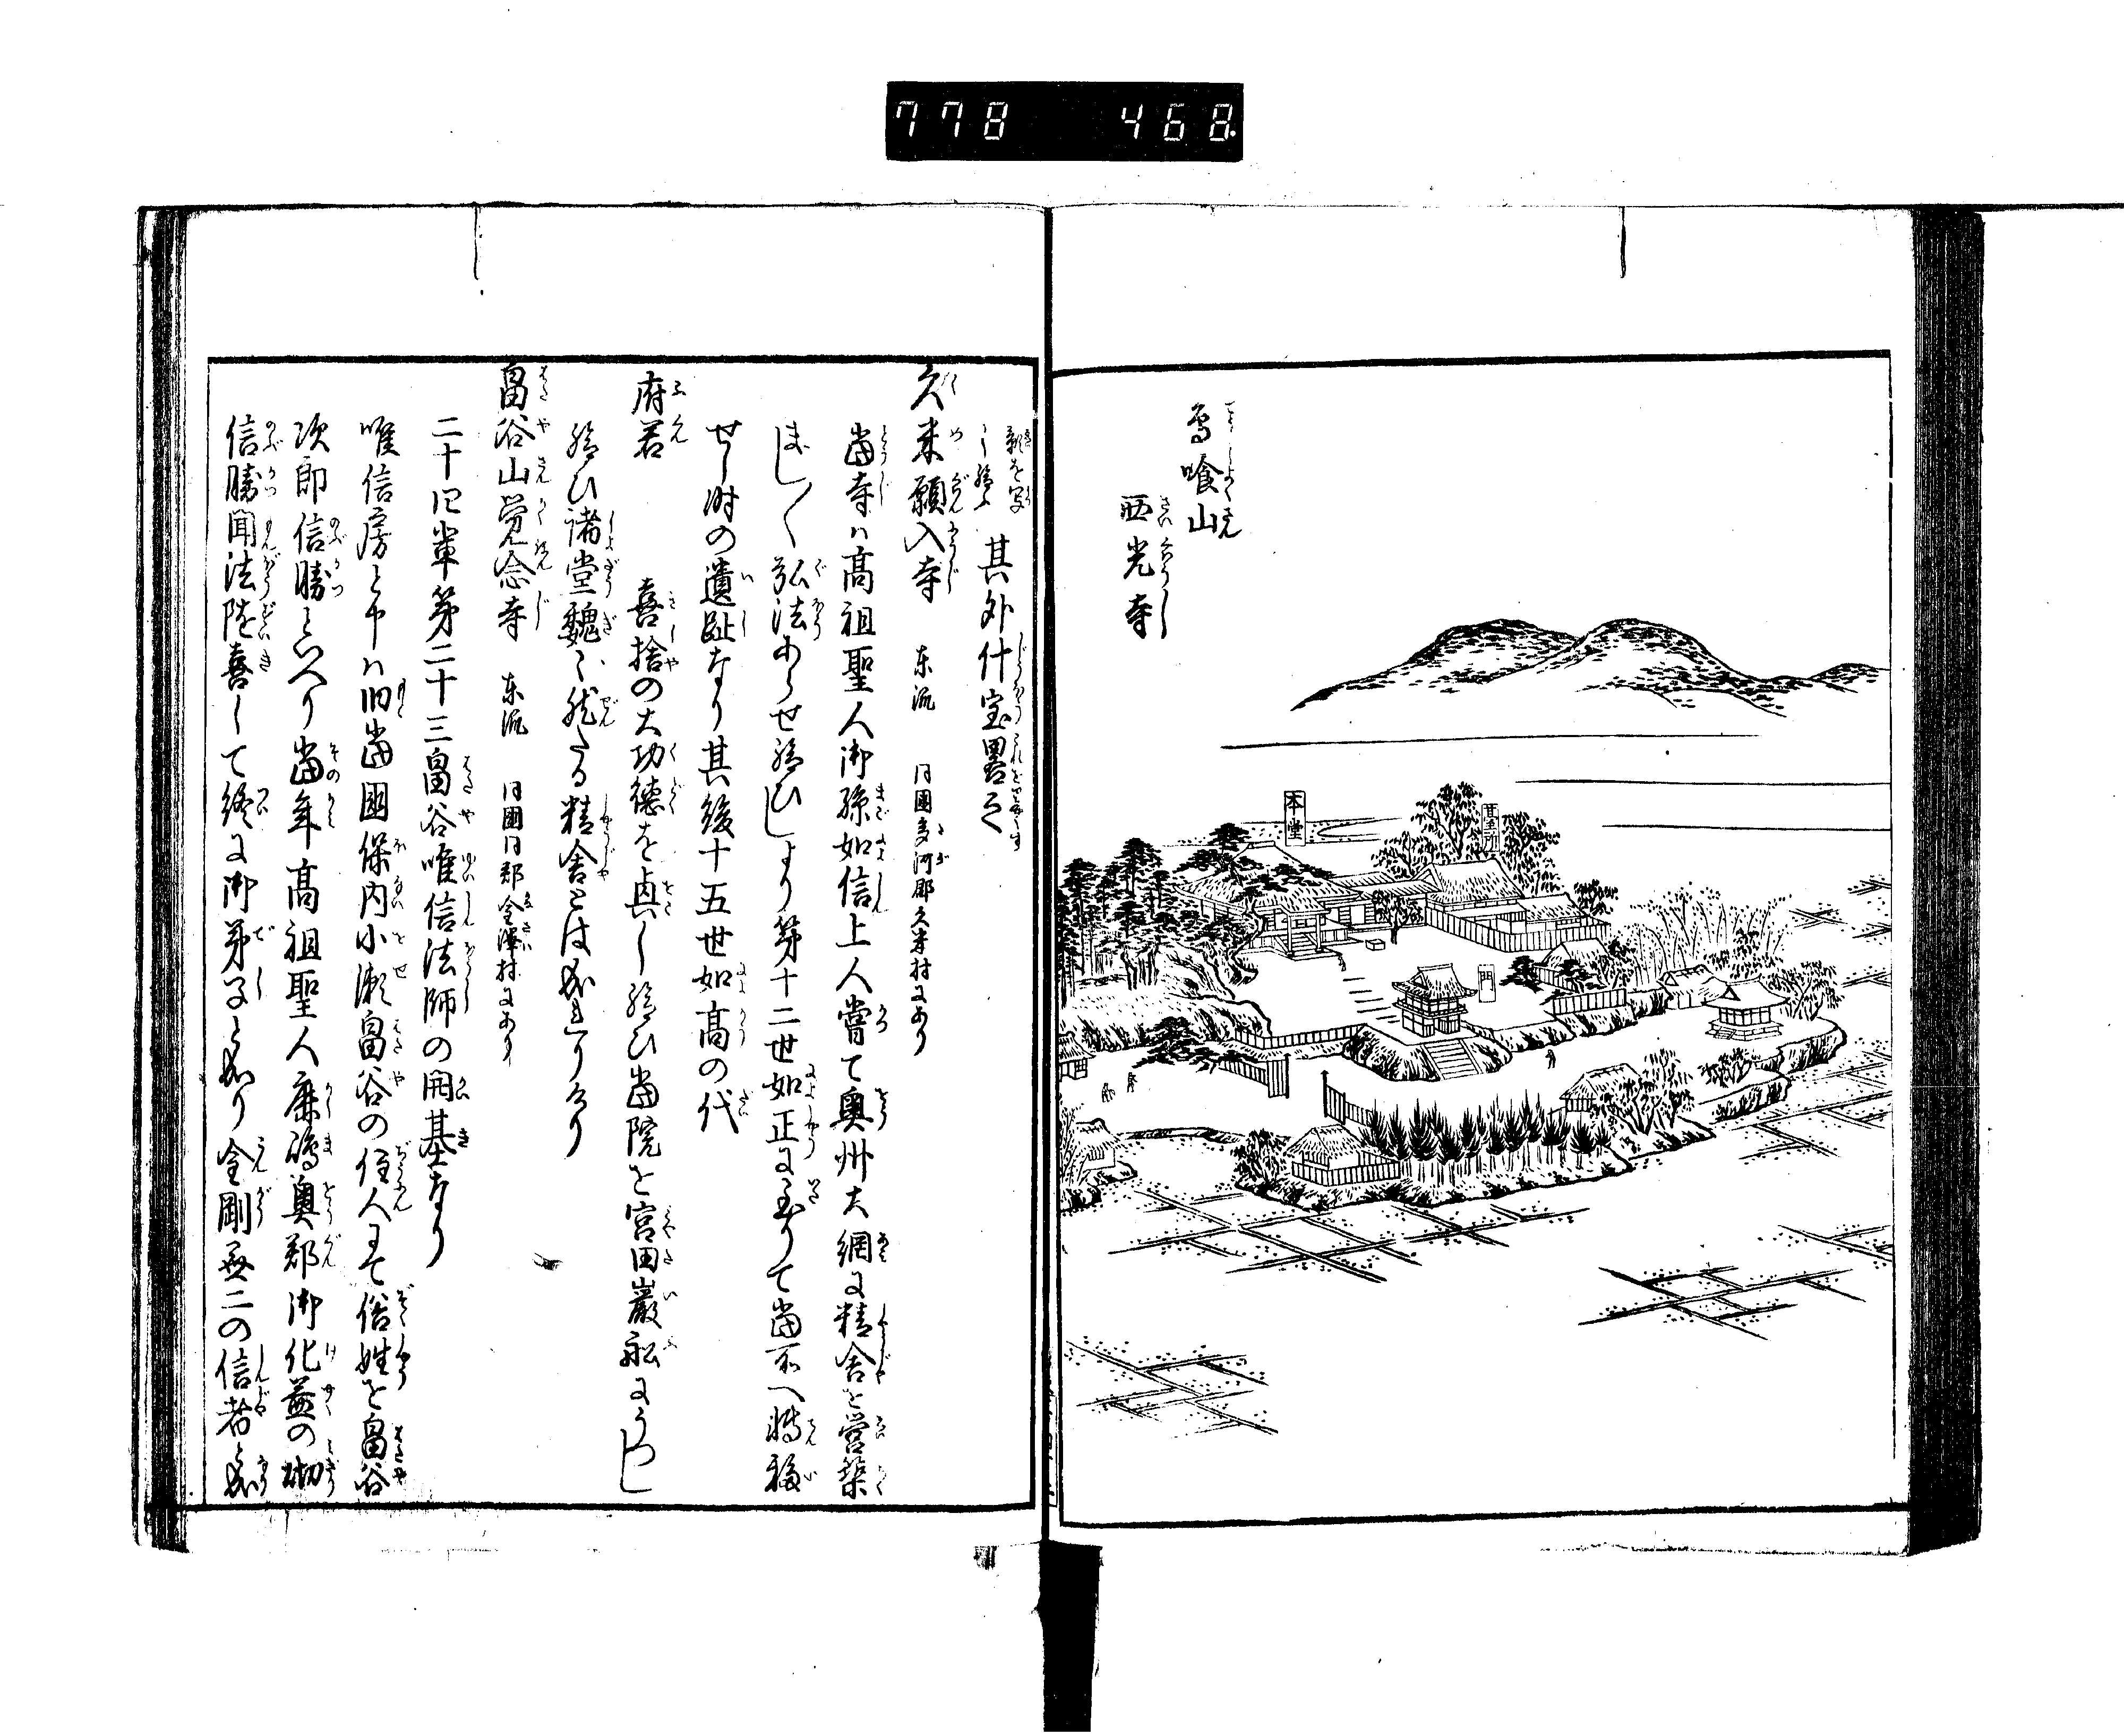 778 468
鳥喰山
西光寺
本堂
門
其外什宝畧之
久米願入寺 東流 同國多珂郡久米村にあり
當寺ハ高祖聖人御孫如信上人嘗て奥州大網に精舎を営築
まし〳〵弘法あらせ給ひしより第十二世如正に至りて當所へ轉移
せし時の遺趾なり其後十五世如高の代
府君 喜捨の大功徳を與し給ひ當院を宮田巖舩にうつし
給ひ諸堂魏々然たる精舎とは成れりけり
畠谷山覚念寺 東流 同國同郡金澤村にあり
二十四輩第二十三畠谷唯信法師の開基なり
唯信房と申ハ旧當國保内小瀬畠谷の住人にて俗姓を畠谷
次郎信勝といへり當年高祖聖人鹿嶋奥郡御化益の砌
信勝聞法随喜して終に御弟子となり金剛無二の信者と成